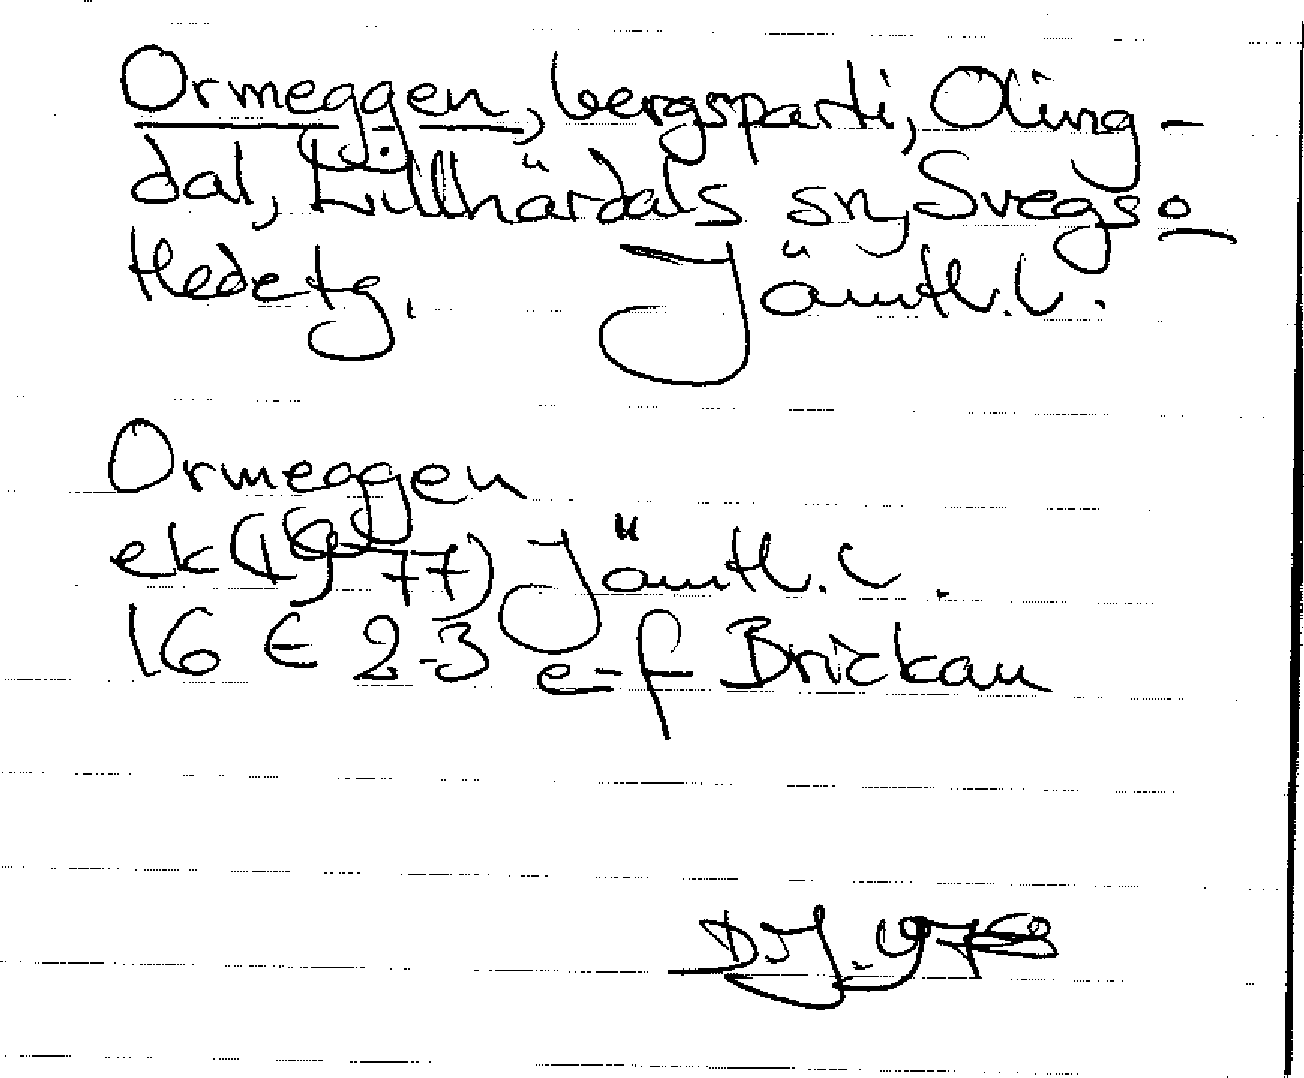 Ormeggen, bergsparti, Oling-
dal, Lillhärdals sn, Svegs o
Hedetg. Jämtl.l.
Ormeggen
ek (1977) Jämtl.l.
16 E 2-3 e-f Brickau